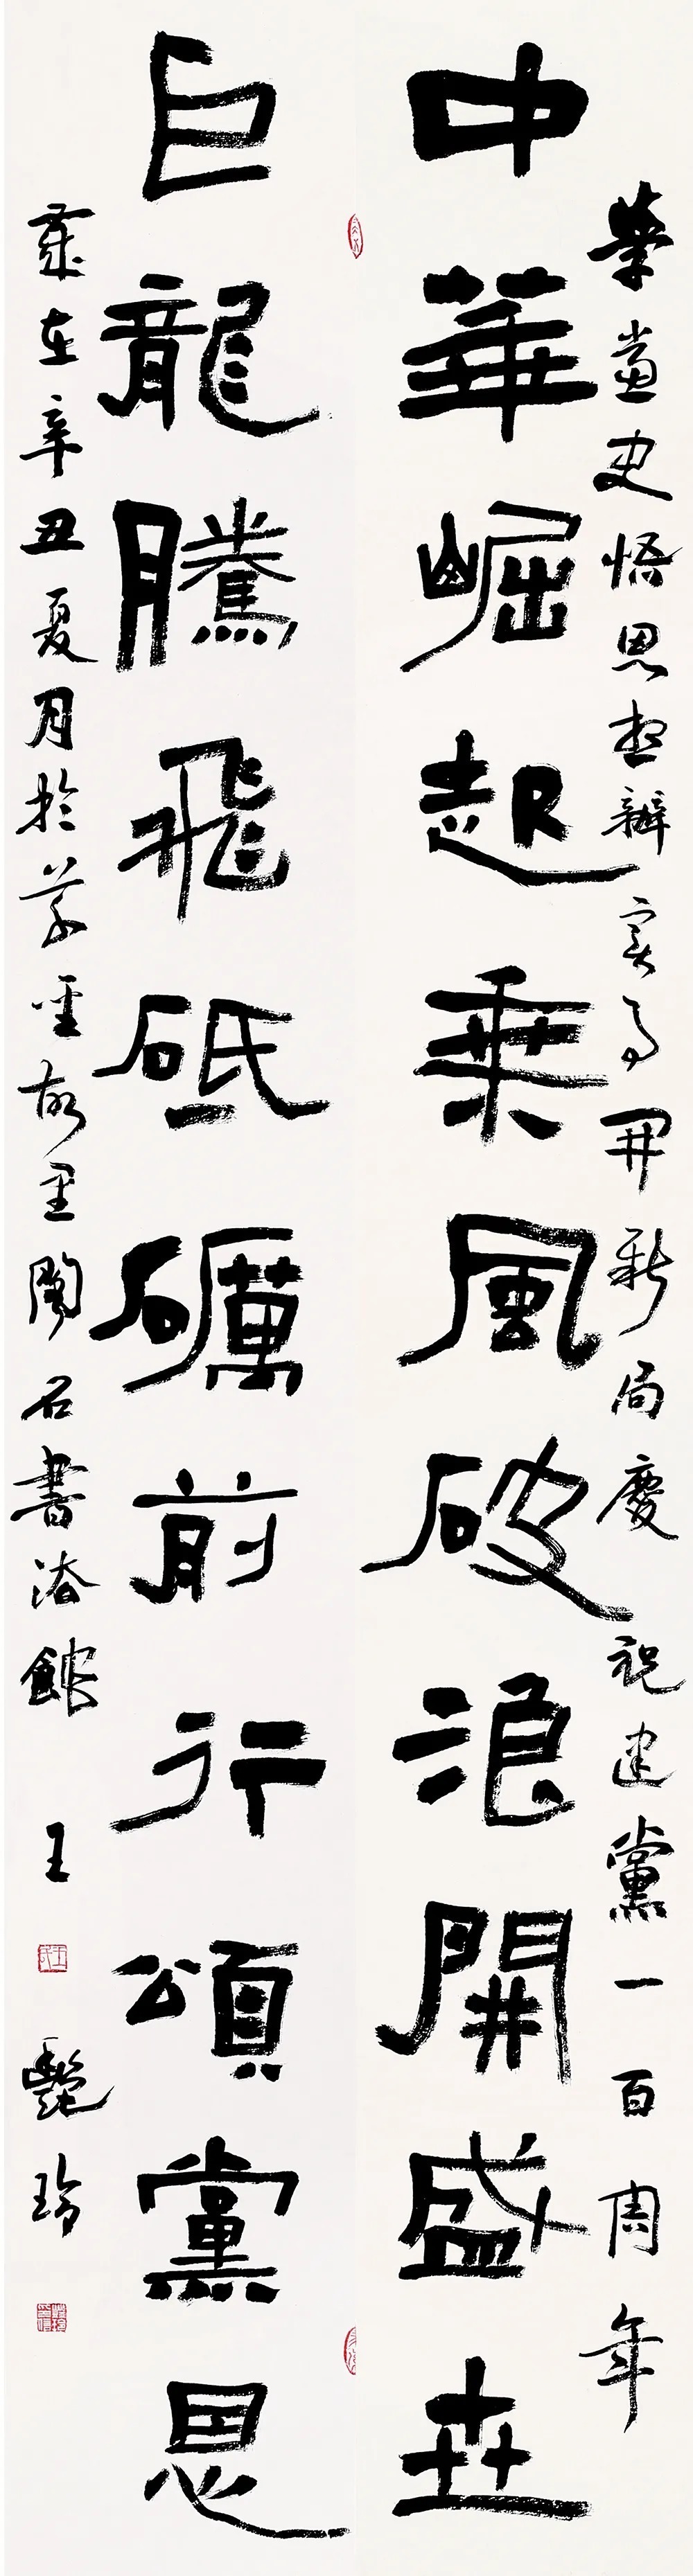 學黨史悟思想辦實事開新局慶祝建黨一百周年
中華崛起乘風破浪開盛世
巨龍騰飛砥礪前行頌黨恩
歲在辛丑夏月於草聖故里石書法館 王艷玲